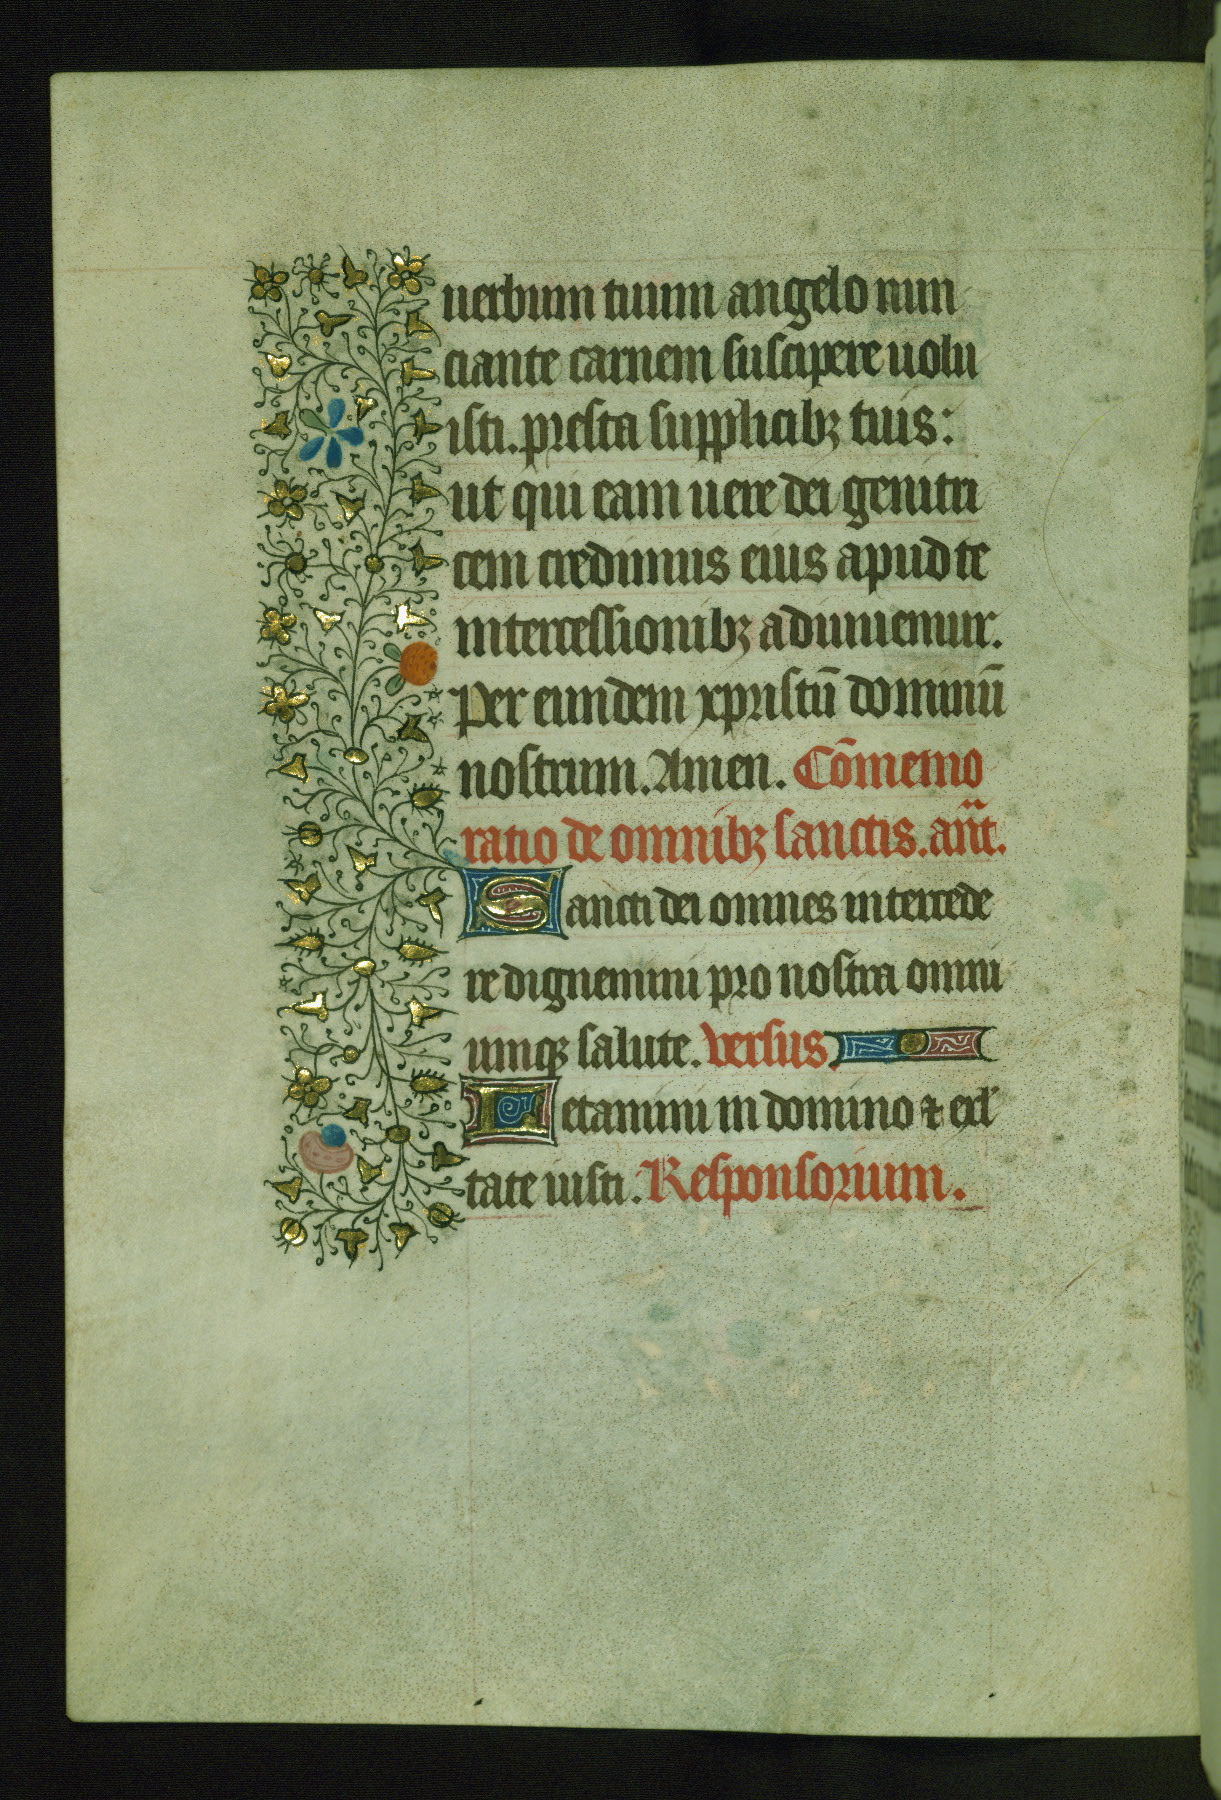 uerbum tuum angelo nun
ciante carnem suscipere uolu
isti. presta supplicibꝫ tuis:
ut qui eam uere dei genitri
cem credimus eius apud te
intercessionibꝫ adiuuemur.
Per eundem xpristū dominū
nostrum. Amen. Cōmemo
ratio de omnibꝫ sanctis. an̄t.
Sancti dei omnes intercede
re dignemini pro nostra omni
umqꝫ salute. versus.
Letamini in domino ⁊ exl'
tate iusti. Responsorium.